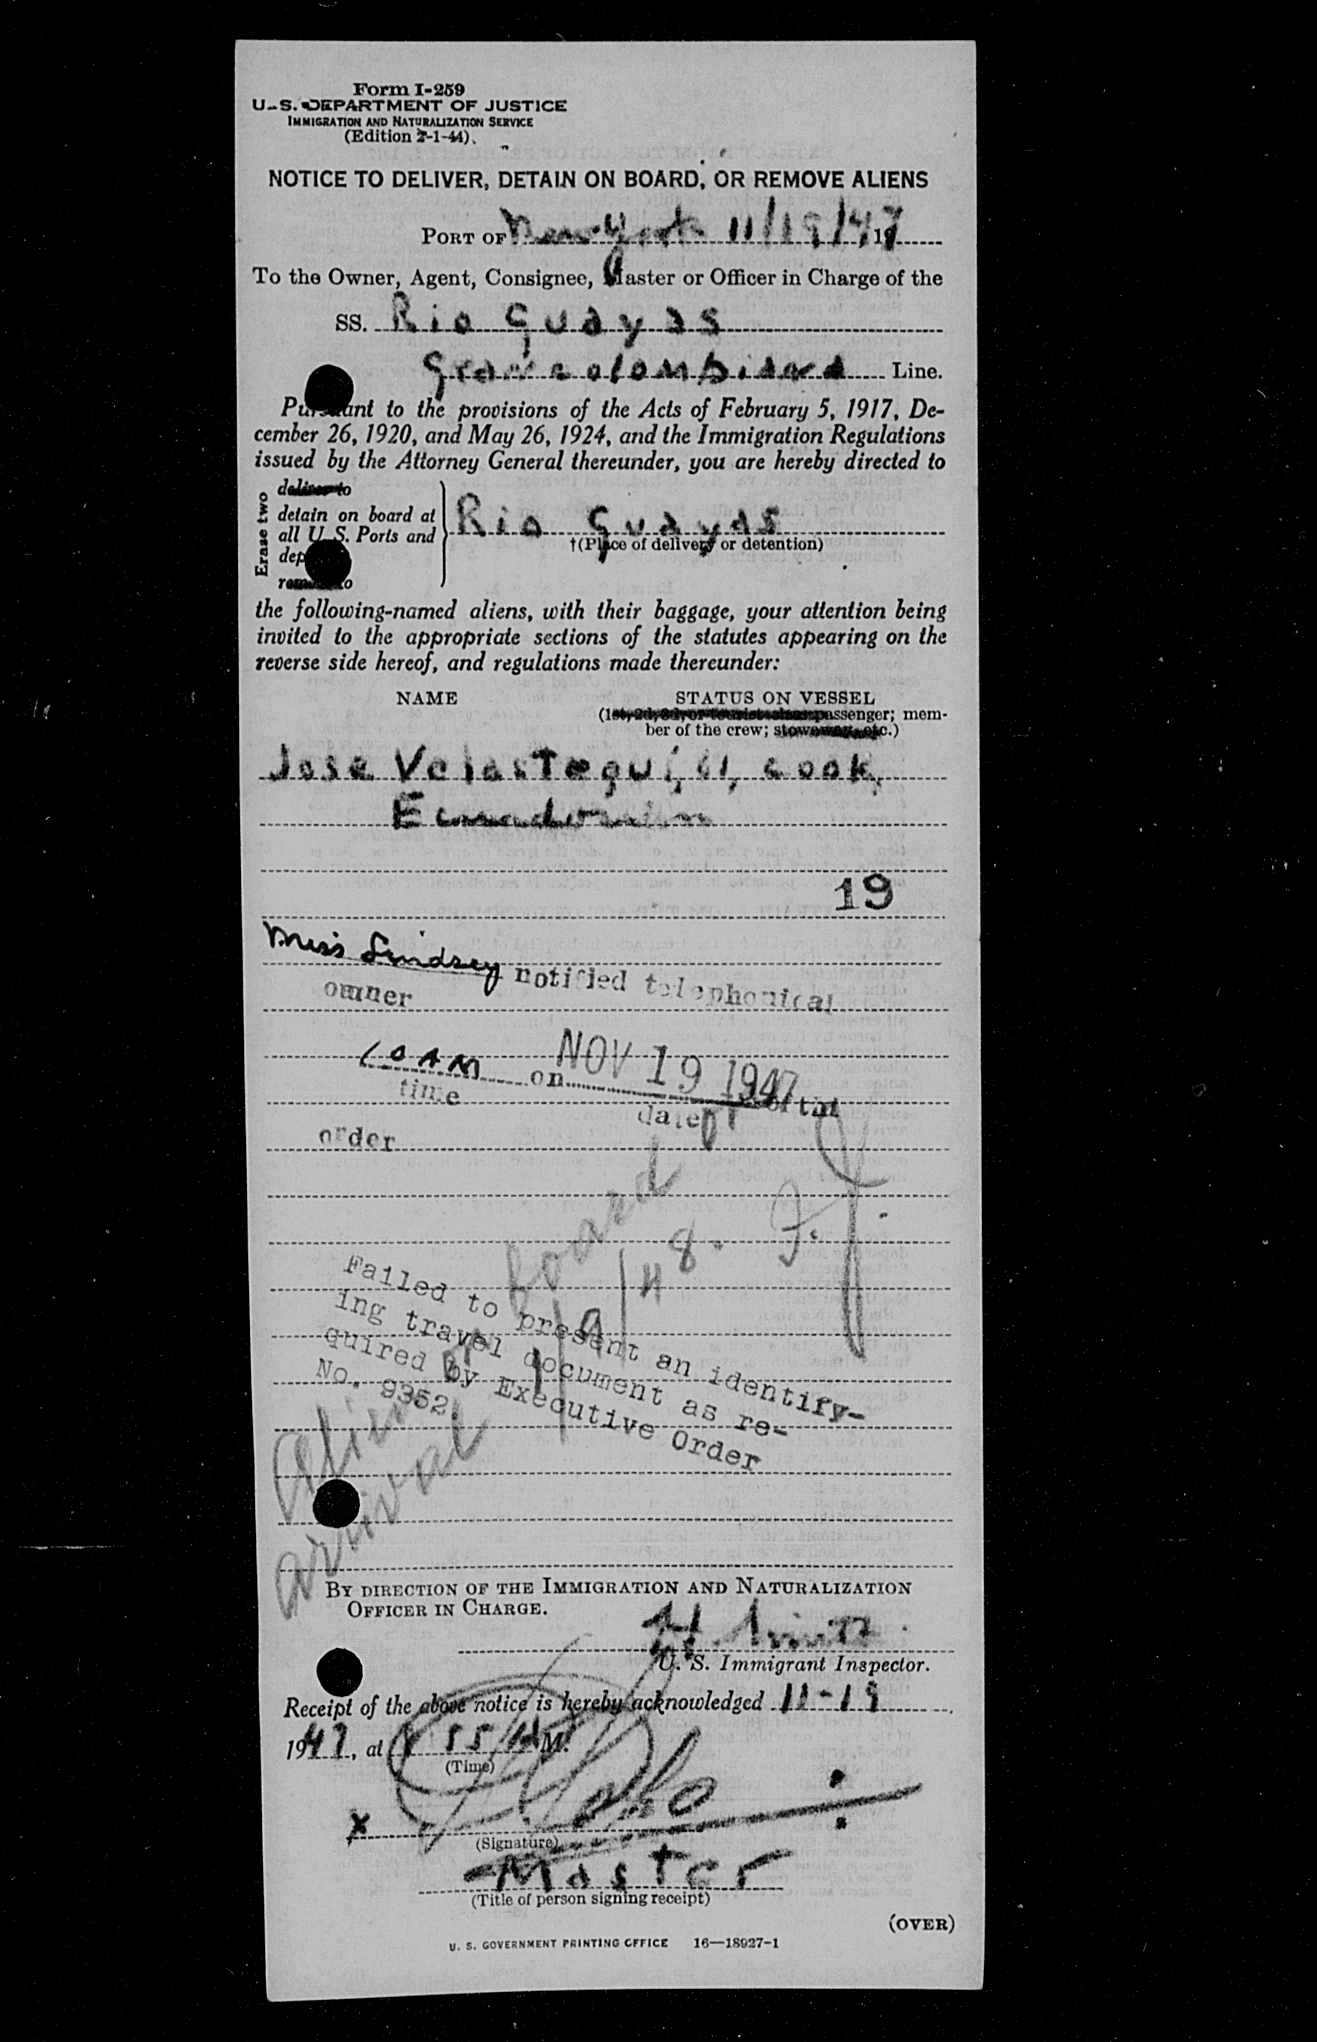 Form I-259
U. S. DEPARTMENT OF JUSTICE
IMMIGRATION AND NATURALIZATION SERVICE
(Edition 2-1-44)
NOTICE TO DELIVER, DETAIN ON BOARD, OR REMOVE ALIENS
PORT OF New York 11/19/47 19
To the Owner, Agent, Consignee, Master or Officer in Charge of the
SS. Rio Guayas
Grancolombiana Line.
Pursuant to the provisions of the Acts of February 5, 1917, De-
cember 26, 1920, and May 26, 1924, and the Immigration Regulations
issued by the Attorney General thereunder, you are hereby directed to
Erase two
deliver to
detain on board at
all U. S. Ports and
Rio Guayas
†(Place of delivery or detention)
remove to
the following-named aliens, with their baggage, your attention being
invited to the appropriate sections of the statutes appearing on the
reverse side hereof, and regulations made thereunder:
NAME STATUS ON VESSEL
(1st, 2d, 3d, or tourist class passenger; mem-
ber of the crew; stowaway, etc.)
Jose Velastegui, 61, cook,
Ecuadorian
19
Miss Lindsey notified telephonical
owner
10 AM on NOV 19 1947
time date
order
Failed to present an identify-
ing travel document as re-
quired by Executive Order
No. 9352.
Alien on board
arrival 1/9/48. F.J.
BY DIRECTION OF THE IMMIGRATION AND NATURALIZATION
OFFICER IN CHARGE.
U. S. Immigrant Inspector.
Receipt of the above notice is hereby acknowledged 11-19
1947, at 8 55 A M.
(Time)
X
(Signature)
Master
(Title of person signing receipt)
(OVER)
U. S. GOVERNMENT PRINTING OFFICE 16—18927-1